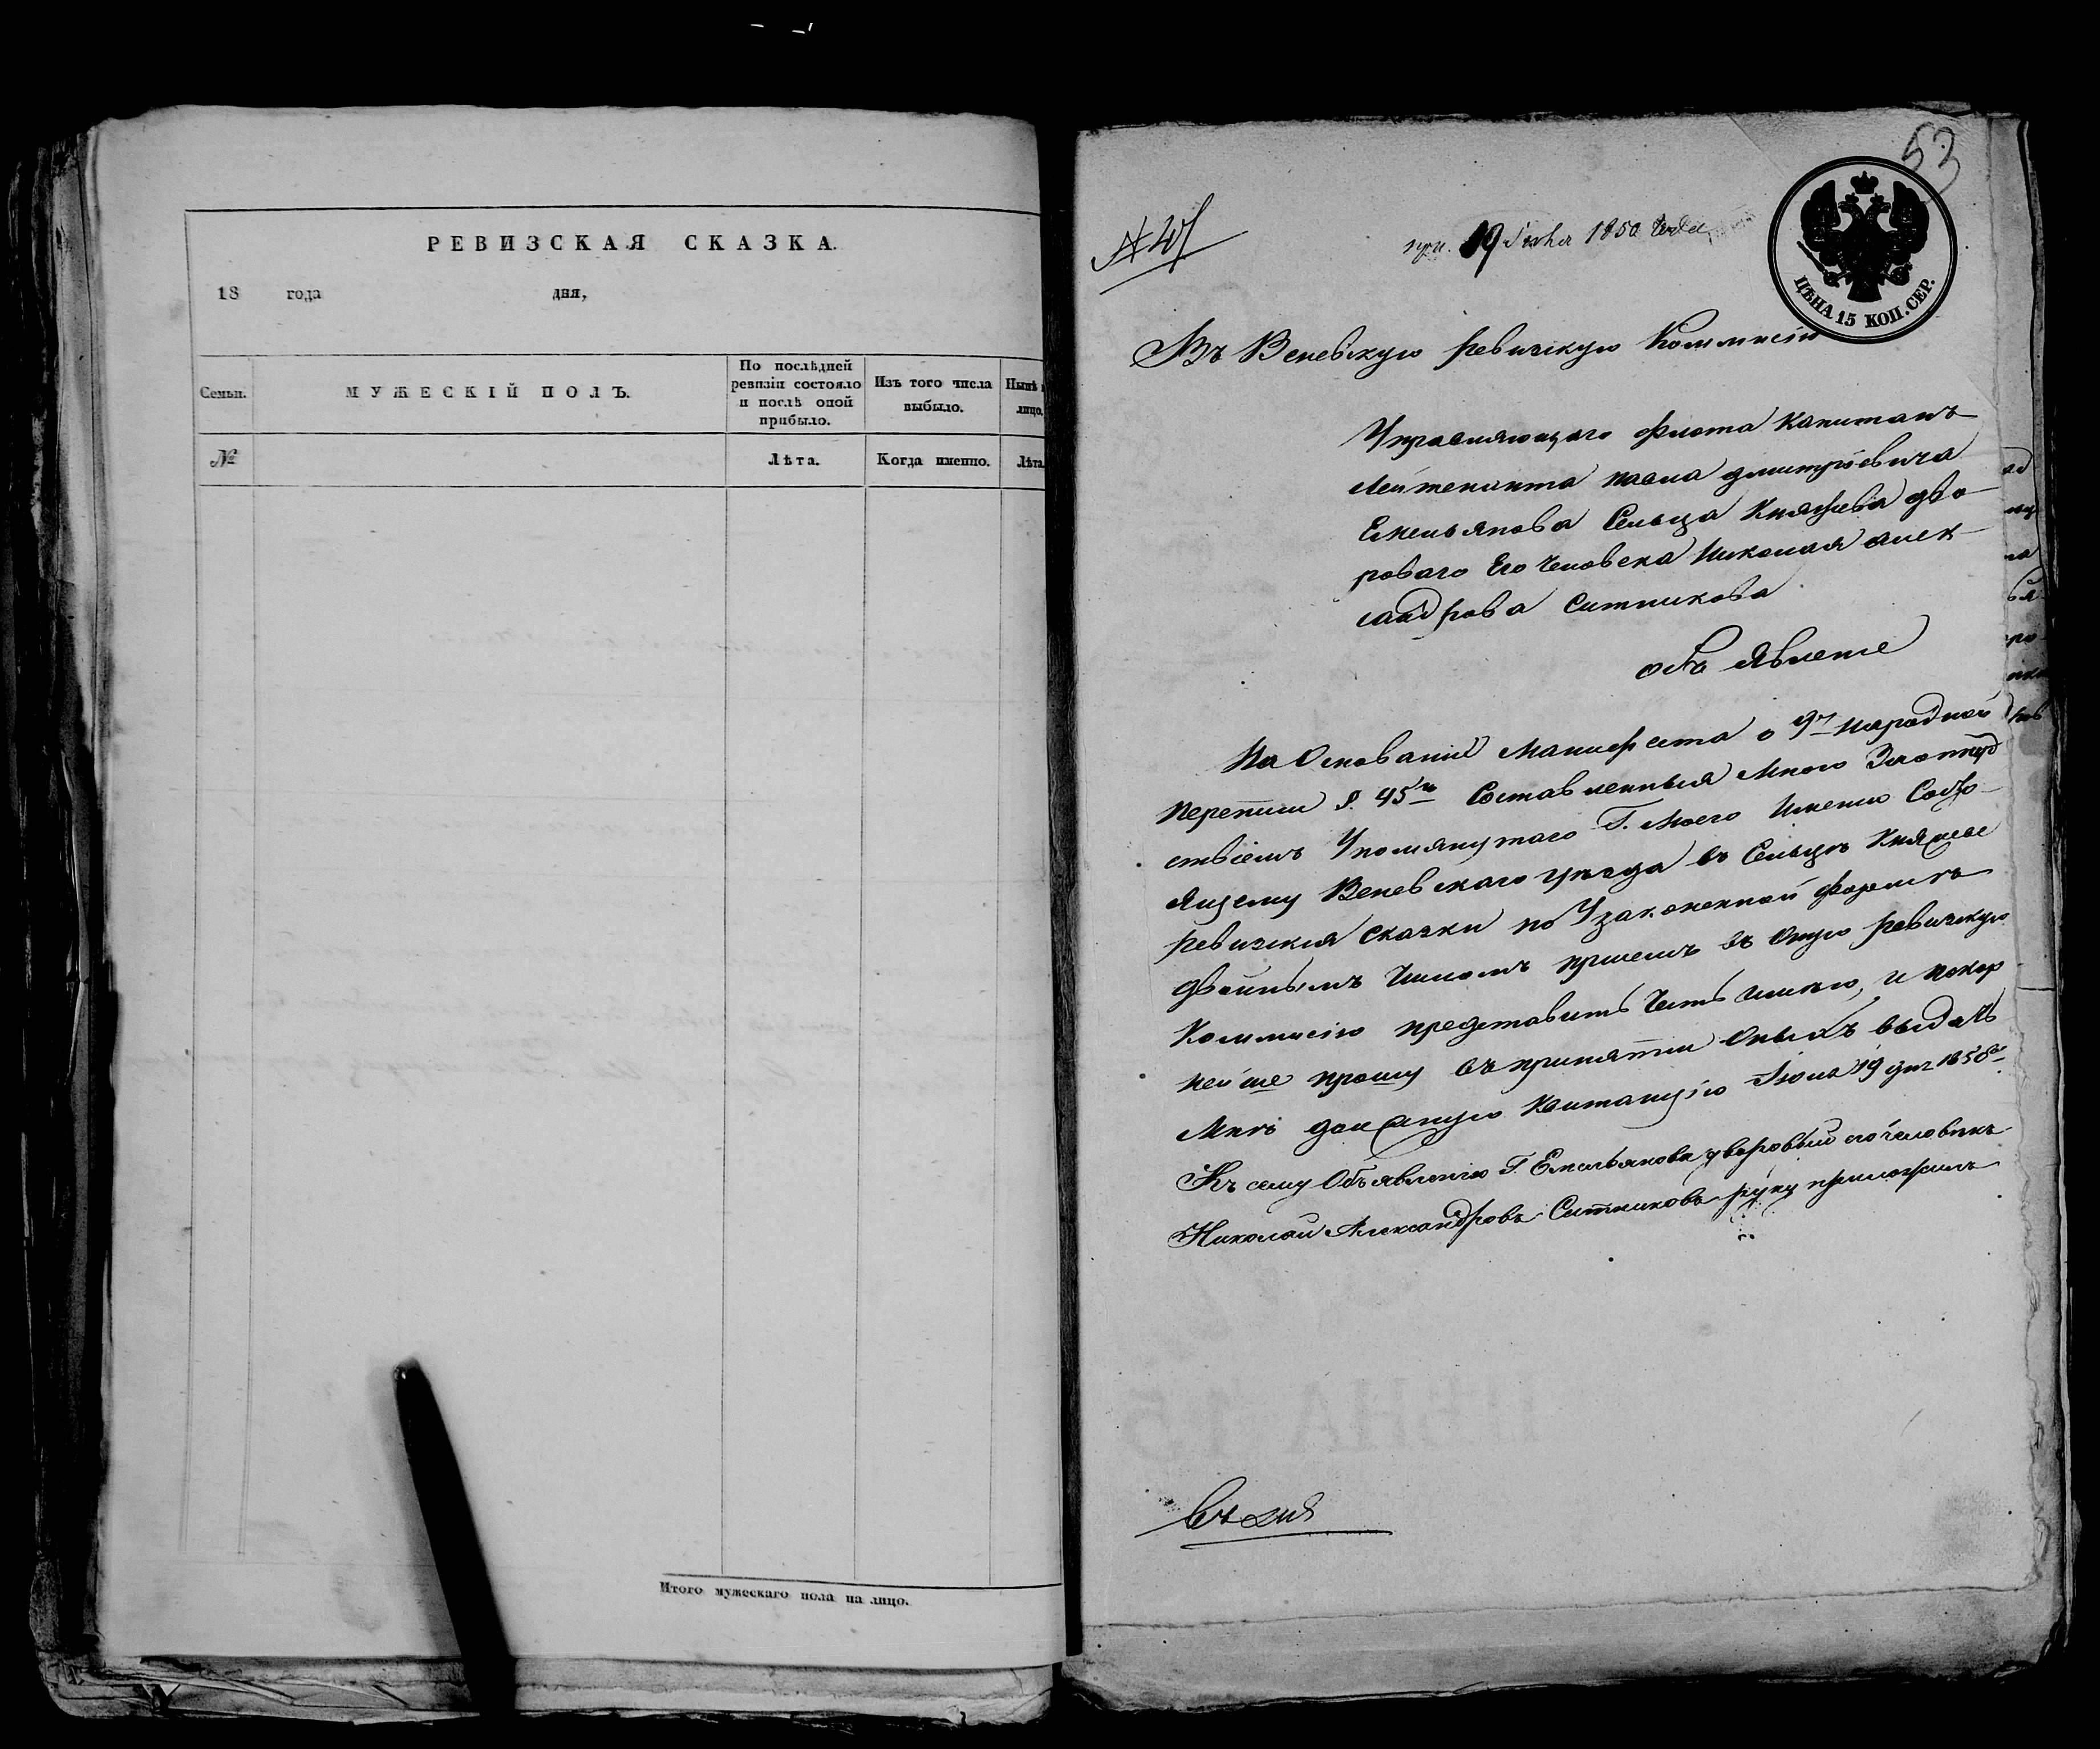 РЕВИЗСКАЯ СКАЗКА.
18 года дня,
Семьи.
МУЖЕСКІЙ ПОЛЪ.
По послѣдней ревизіи состояло и послѣ оной прибыло.
Изъ того числа выбыло.
Нынѣ
лицо.
№
Лѣта.
Когда именно.
Лѣта
Итого мужескаго пола на лицо.
53
19 Іюня 1850 года
ЦѢНА 15 КОП. СЕР.
Въ Веневскую Ревизскую Коммисію
Управляющаго флота Капитанъ
Лейтенанта павла дмитріевича
Емельянова Сельца Княжева дво-
роваго Его Человека Николая алек-
сандрова Ситникова
объ Явленіе
На Основаніи Манифеста о 9й народной
переписи §. 45 Составленныя Мною
ствіемъ Упомянутаго Г. Моего Имѣнію Состо-
ящему Веневскаго уѣзда въ Сельцѣ Княжеве
ревизскія сказки по Узаконенной формѣ
двойнымъ Числомъ при семъ въ Оную ревизскую
Коммисію представить Честь имѣю, и покор
нейше прошу въ принятіи Оныхъ выдать
Мнѣ должную Квитанцію Іюня 19 дня 1850
Къ сему Объявленію Г. Емельянова дворовый его человѣкъ
Николай Александровъ Ситниковъ руку приложилъ